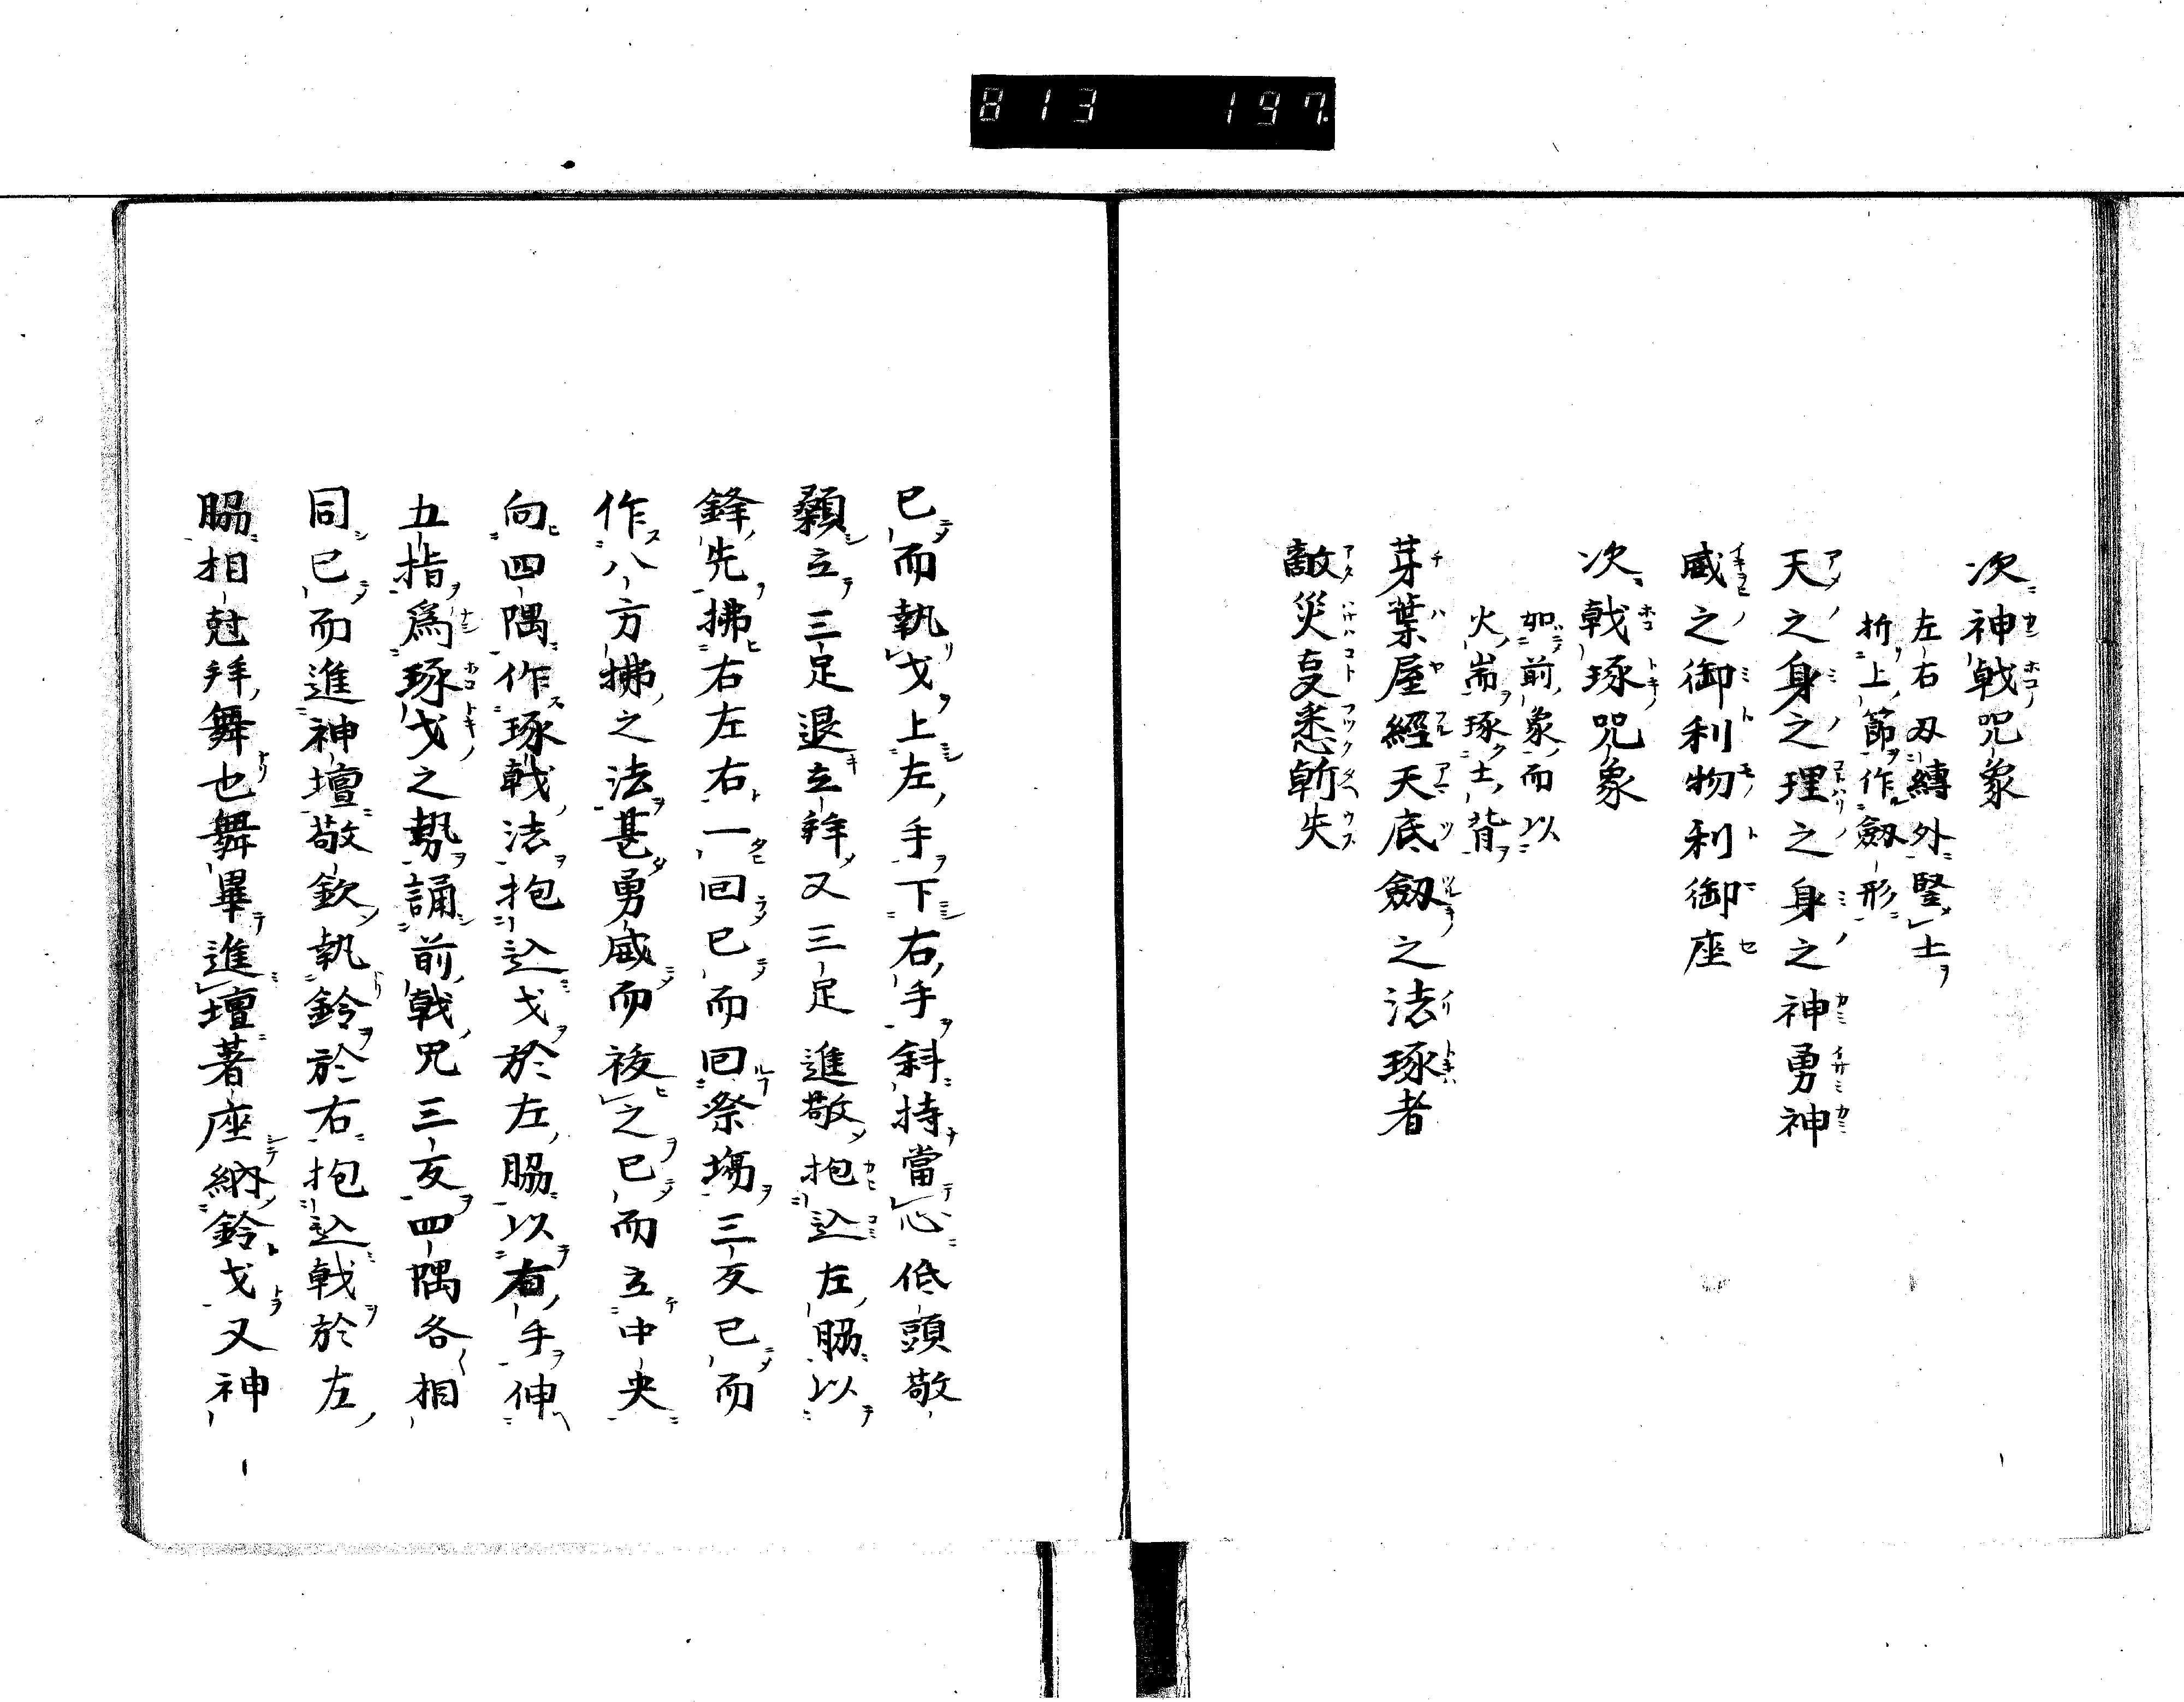 813 197
次神戟咒象
左右刄縛外竪士
折上節作劔形
天之身之理之身之神勇神
威之御利物利御座
次戟琢咒象
如前象而以
火耑琢士背
芽葉屋經天底劔之法琢者
敵災㕝悉斬失
已而執戈上左手下右手斜持當心低頭敬
顙立三足退立拜又三足進敬抱込左脇以
鋒先拂右左右一回已而回祭塲三反已而
作八方拂之法甚勇威而祓之已而立中央
向四隅作琢戟法抱込戈於左脇以右手伸
五指爲琢戈之勢誦前戟咒三反四隅各相
同已而進神壇敬欽執鈴於右抱込戟於左
脇相尅拜舞也舞畢進壇著座納鈴戈又神